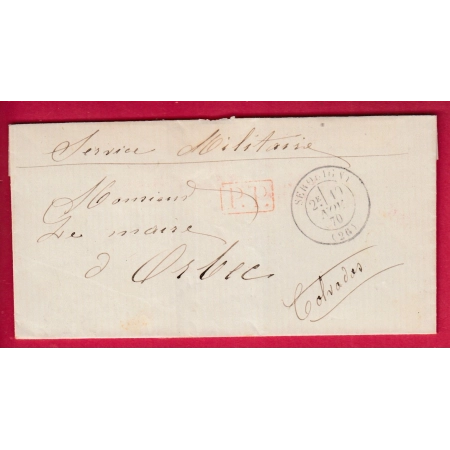 Service Militaire
Monsieur
Le maire
à Orbec
Calvados
P.P.
SERQUIGNY
2E
70
(26)